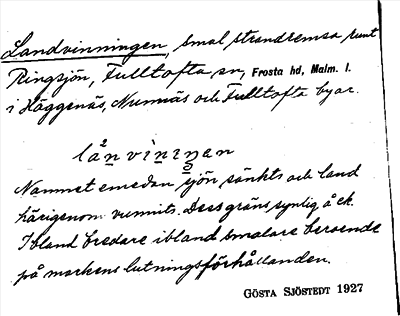 Landvinningen, smal strandremsa runt
Ringsjön, Fulltofta sn, Frosta hd, Malm. l.
i Häggenäs, Nunnäs och Fulltofta byar.
lånvininan
Namnet emedan sjön sänkts och land
härigenom vunnits. Dess gräns synlig å ek.
Ibland bredare ibland smalare beroende
på markens lutningsförhållanden.
GÖSTA SJÖSTEDT 1927